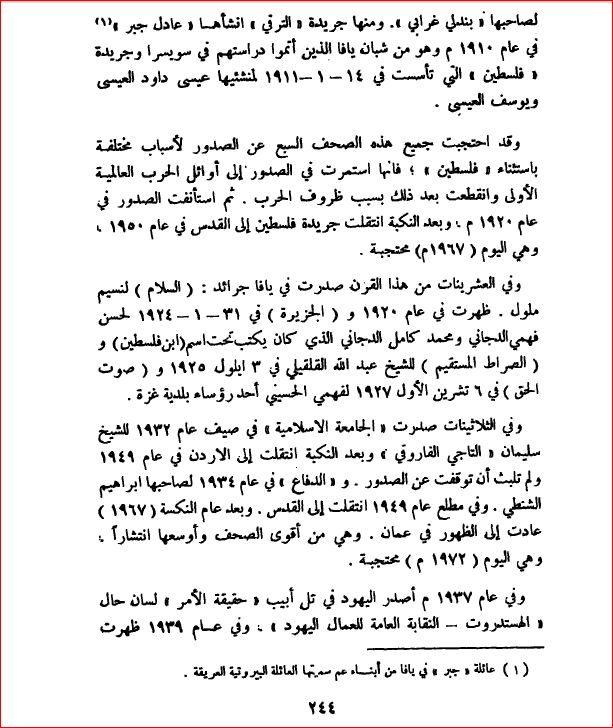 لصاحبها « بندلي غرابي ». ومنها جريدة « الترقي » انشأهـا « عادل جبر » (١)
في عام ١٩١٠ م وهو من شبان يافا الذين أتموا دراستهم في سويسرا وجريدة
« فلسطين » التي تأسست في ١٤ – ١ – ١٩١١ لمنشئيها عيسى داود العيسى
ويوسف العيسى .
وقد احتجبت جميع هذه الصحف السبع عن الصدور لأسباب مختلفـة
باستثناء « فلسطين » ؛ فانها استمرت في الصدور إلى أوائل الحرب العالميـة
الأولى وانقطعت بعد ذلك بسبب ظروف الحرب . ثم استأنفت الصدور في
عام ١٩٢٠ م ، وبعد النكبة انتقلت جريدة فلسطين إلى القدس في عام ١٩٥٠ ،
وهي اليوم ( ١٩٦٧م ) محتجبـة .
وفي العشرينات من هذا القرن صدرت في يافا جرائد : ( السلام ) لنسيم
ملول . ظهرت في عام ١٩٢٠ و ( الجزيرة ) في ٣١ – ١ – ١٩٢٤ لحسن
فهمي الدجاني ومحمد كامل الدجاني الذي كان يكتب تحت اسم (ابن فلسطين) و
( الصراط المستقيم ) للشيخ عبد الله القلقيلي في ٣ ايلول ١٩٢٥ و ( صوت
الحق ) في ٦ تشرين الأول ١٩٢٧ لفهمي الحسيني أحد رؤساء بلدية غزة .
وفي الثلاثينات صدرت « الجامعة الاسلامية » في صيف عام ١٩٣٢ للشيخ
سليمان « التاجي الفاروقي » وبعد النكبة انتقلت إلى الاردن في عام ١٩٤٩
ولم تلبث أن توقفت عن الصدور . و « الدفاع » في عام ١٩٣٤ لصاحبها ابراهيم
الشنطي . وفي مطلع عام ١٩٤٩ انتقلت إلى القدس . وبعد عام النكسة ( ١٩٦٧ )
عادت إلى الظهور في عمان . وهي من أقوى الصحف وأوسعها انتشاراً ،
وهي اليوم ( ١٩٧٢ م ) محتجبـة .
وفي عام ١٩٣٧ م أصدر اليهود في تل أبيب « حقيقة الأمر » لسان حال
« الهستدروت – النقابة العامة للعمال اليهود » ، وفي عـام ١٩٣٩ ظهرت
( ١ ) عائلة « جبر » في يافا من أبنـاء عم سميتها العائلة البيروتية العريقة .
٢٤٤